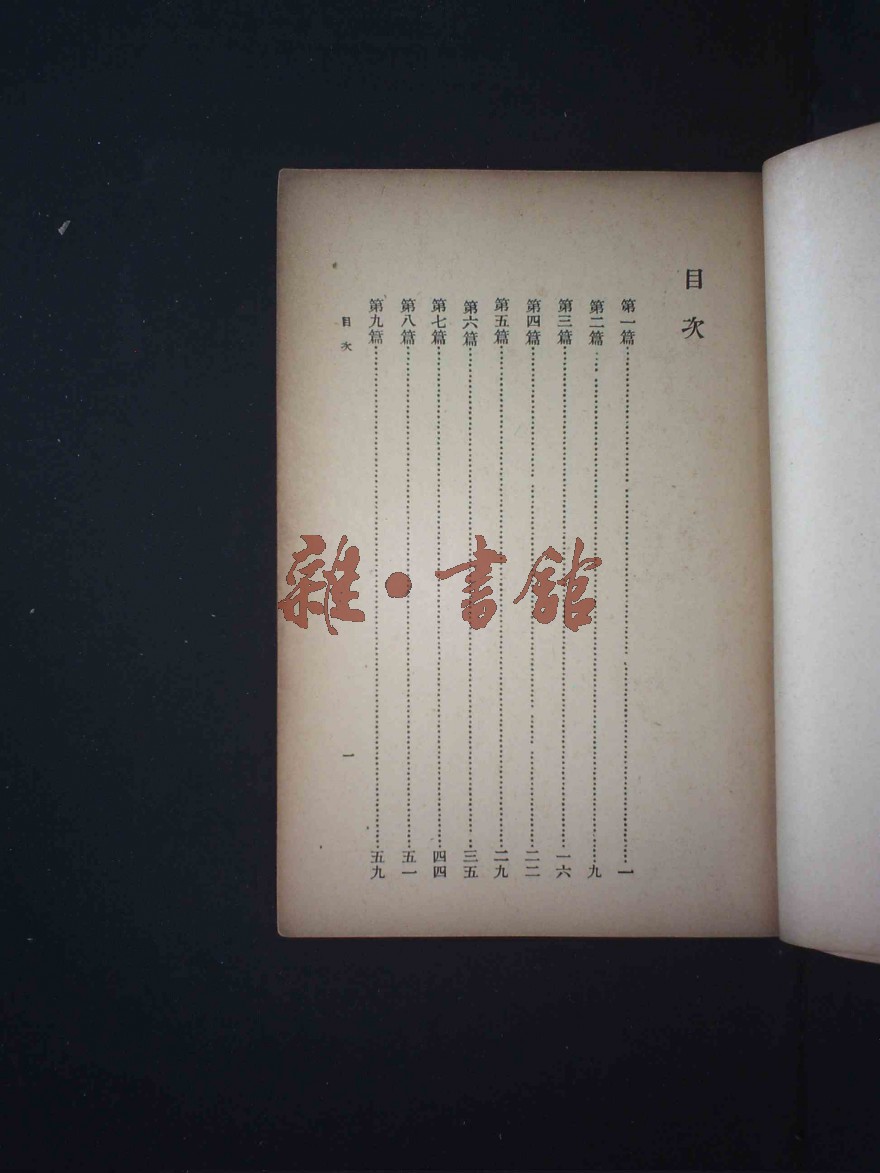 目次
第一篇……一
第二篇……九
第三篇……一六
第四篇……二二
第五篇……二九
第六篇……三五
第七篇……四四
第八篇……五一
第九篇……五九
目次
一
雜·書館